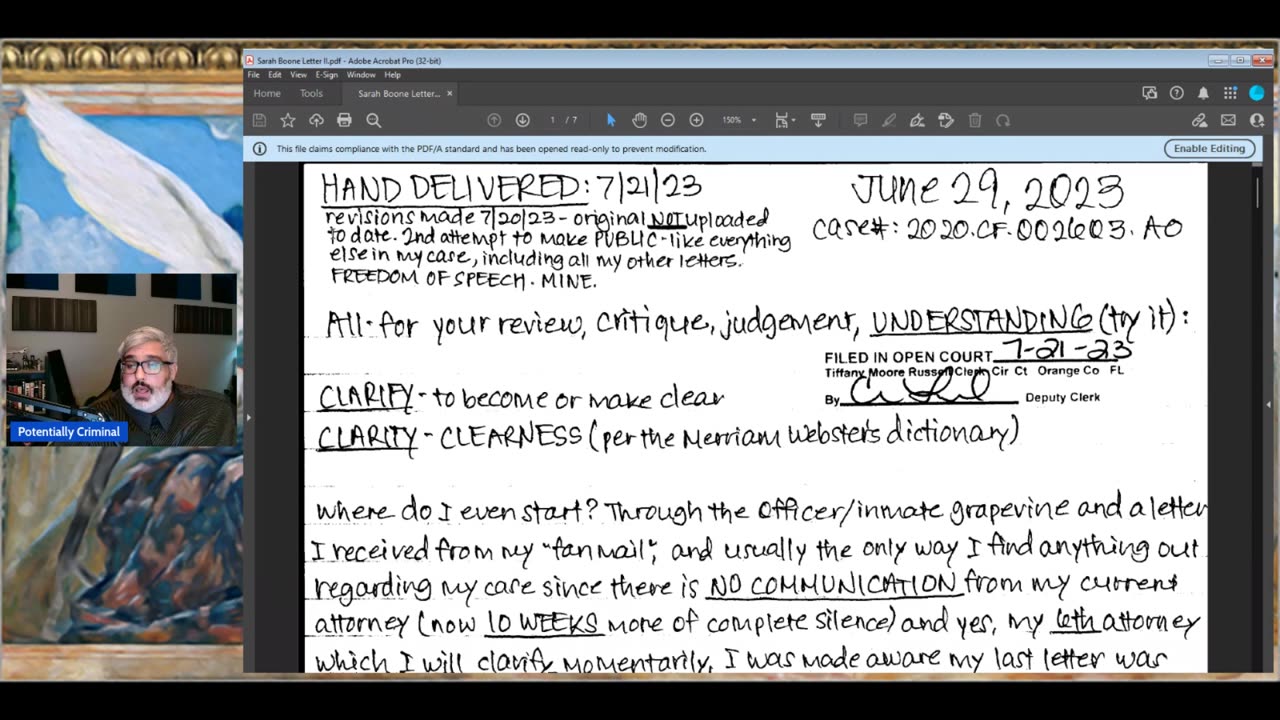 Sarah Boone Letter II.pdf - Adobe Acrobat Pro (32-bit)
File Edit View E-Sign Window Help
Home Tools Sarah Boone Letter... ×
1 / 7 150%
This file claims compliance with the PDF/A standard and has been opened read-only to prevent modification. Enable Editing
HAND DELIVERED: 7/21/23
JUNE 29, 2023
revisions made 7/20/23 - original NOT uploaded
to date. 2nd attempt to make PUBLIC - like everything
else in my case, including all my other letters.
FREEDOM OF SPEECH. MINE.
case#: 2020.CF.002603.AO
All- for your review, critique, judgement, UNDERSTANDING (try it):
FILED IN OPEN COURT 7-21-23
Tiffany Moore Russell Clerk Cir Ct Orange Co FL
By Deputy Clerk
CLARIFY - to become or make clear
CLARITY - CLEARNESS (per the Merriam Webster's dictionary)
where do I even start? Through the officer/inmate grapevine and a letter
I received from my "fan mail", and usually the only way I find anything out
regarding my case since there is NO COMMUNICATION from my current
attorney (now 10 WEEKS more of complete silence) and yes, my 6th attorney
which I will clarify momentarily. I was made aware my last letter was
Potentially Criminal